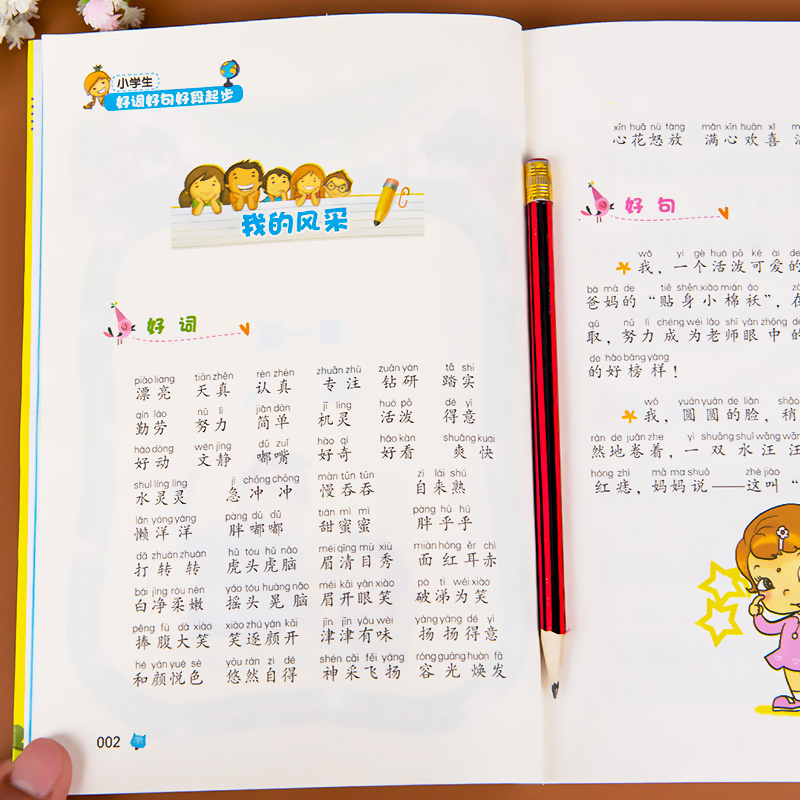 小学生
好词好句好段起步
我的风采
好词
piào liang tiān zhēn rèn zhēn zhuān zhù zuān yán tā shi
漂亮 天真 认真 专注 钻研 踏实
qín láo nǔ lì jiǎn dān jī líng huó pō dé yì
勤劳 努力 简单 机灵 活泼 得意
hào dòng wén jìng dū zuǐ hào qí hǎo kàn shuǎng kuai
好动 文静 嘟嘴 好奇 好看 爽快
shuǐ líng líng jí chōng chōng màn tūn tūn zì lái shú
水灵灵 急冲冲 慢吞吞 自来熟
lǎn yáng yáng pàng dū dū tián mì mì pàng hū hū
懒洋洋 胖嘟嘟 甜蜜蜜 胖乎乎
dǎ zhuàn zhuàn hǔ tóu hǔ nǎo méi qīng mù xiù miàn hóng ěr chì
打转转 虎头虎脑 眉清目秀 面红耳赤
bái jìng róu nèn yáo tóu huàng nǎo méi kāi yǎn xiào pò tì wéi xiào
白净柔嫩 摇头晃脑 眉开眼笑 破涕为笑
pěng fù dà xiào xiào zhú yán kāi jīn jīn yǒu wèi yáng yáng dé yì
捧腹大笑 笑逐颜开 津津有味 扬扬得意
hé yán yuè sè yōu rán zì dé shén cǎi fēi yáng róng guāng huàn fā
和颜悦色 悠然自得 神采飞扬 容光焕发
002
xīn huā nù fàng mǎn xīn huān xǐ
心花怒放 满心欢喜
好句
wǒ yí gè huó pō kě ài de
我，一个活泼可爱的
bà mā de tiē shēn xiǎo mián ǎo
爸妈的“贴身小棉袄”，在
qǔ nǔ lì chéng wéi lǎo shī yǎn zhōng de
取，努力成为老师眼中的
de hǎo bǎng yàng
的好榜样！
wǒ yuán yuán de liǎn shāo
我，圆圆的脸，稍
rán de juǎn zhe yì shuāng shuǐ wāng wāng
然地卷着，一双水汪汪
hóng zhì mā ma shuō zhè jiào
红痣，妈妈说——这叫“